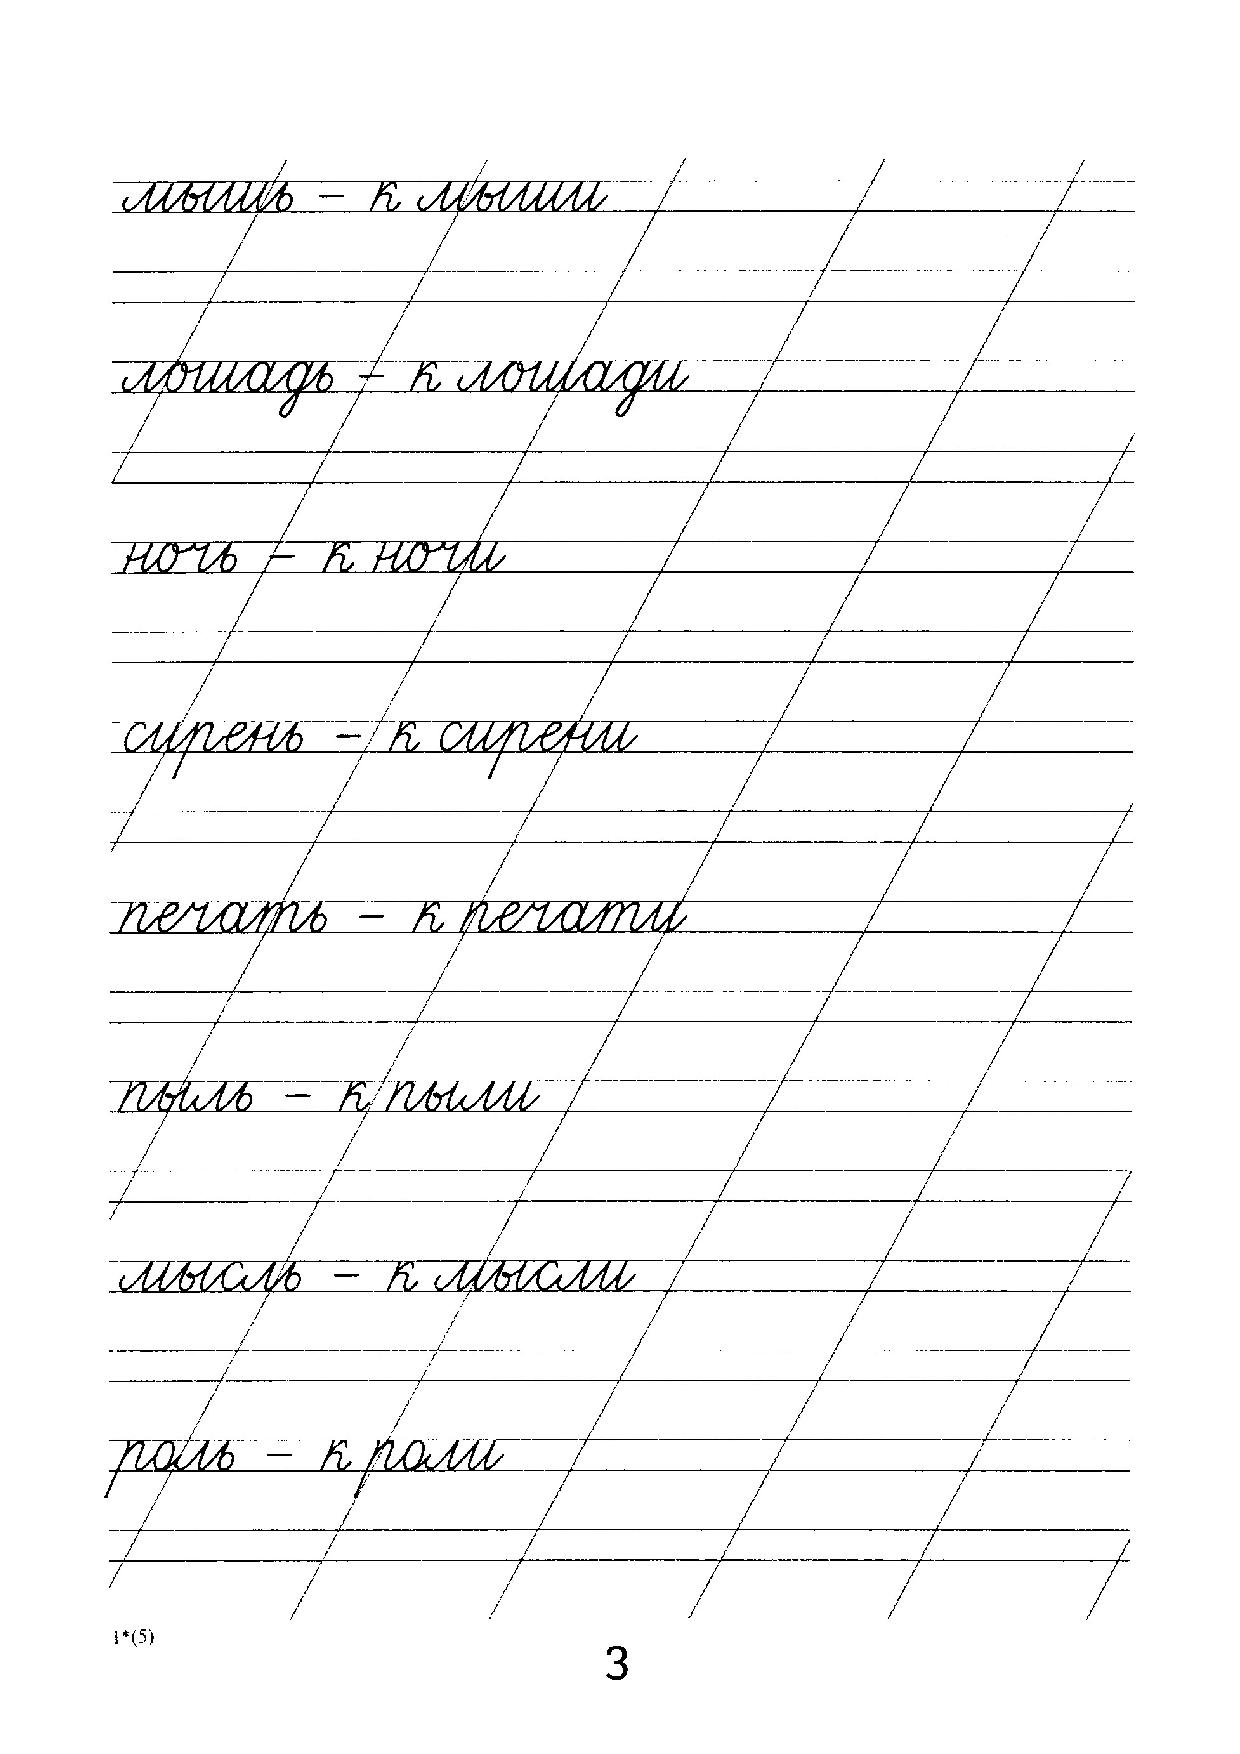 мышь – к мыши
лошадь – к лошади
ночь – к ночи
сирень – к сирени
печать – к печати
пыль – к пыли
мысль – к мысли
роль – к роли
1*(5)
3